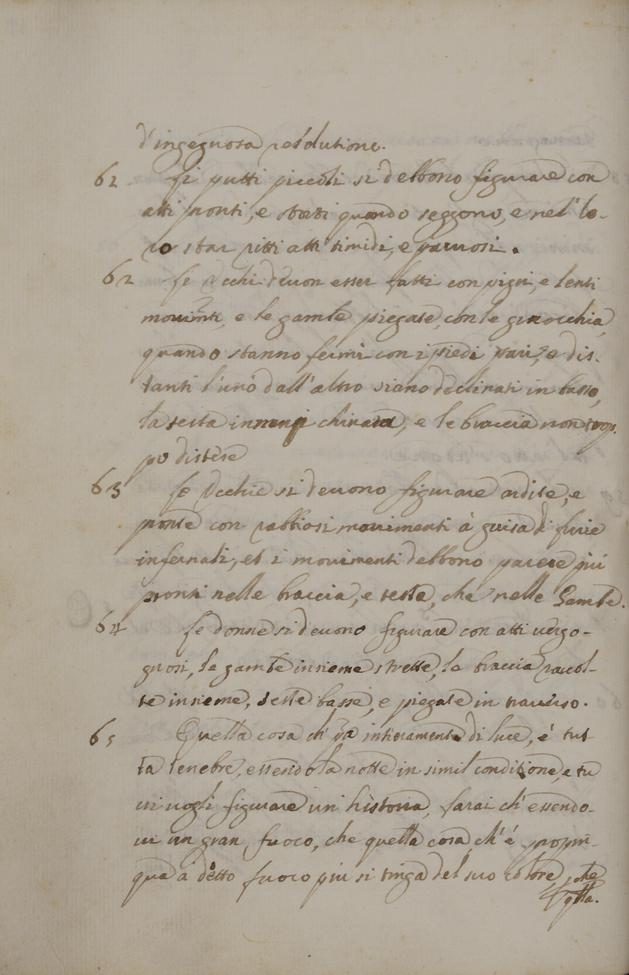 d'ingegnosa resolutione.
61 Li putti piccoli si debbono figurare con
atti pronti, e storti quando seggono, e nel lo-
ro star ritti atti timidi, e paurosi.
62 Le vecchi devon esser fatti con pigri, e lenti
movimti, e le gambe piegate, con le ginocchia,
quando stanno fermi con i piedi pari, e dis-
tanti l'uno dall'altro siano declinati in basso,
la testa innanzi chinata, e le braccia non trop-
po distese
63 Le Vecchie si devono figurare ardite, e
pronte con rabbiosi movimenti à guisa di furie
infernali, et i movimenti debbono parere più
pronti nelle braccia, e teste, che nelle Gambe.
64 Le donne si devono figurare con atti vergo-
gnosi, le gambe insieme strette, la braccia raccol-
te insieme, teste basse, e piegate in traverso.
65 Quella cosa ch'è intieramente di luce, è tut-
ta tenebre, essendo la notte in simil conditione, e tu
vi vogli figurare un'historia, farai ch'essendo-
vi un gran fuoco, che quella cosa ch'è propin-
qua a detto fuoco più si tinga del suo colore, che
qlla.